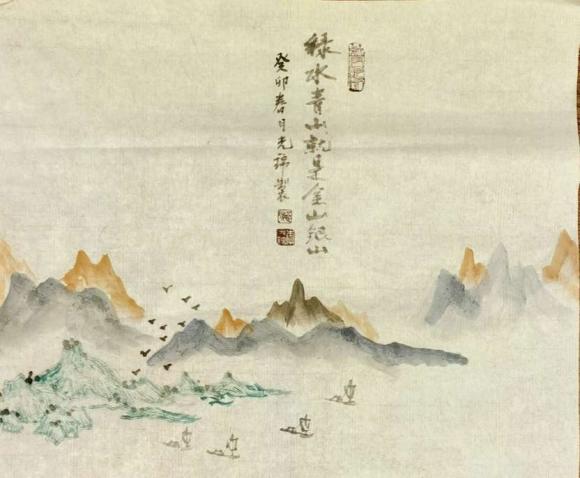 緑水青山就是金山銀山
癸卯春月光锦製